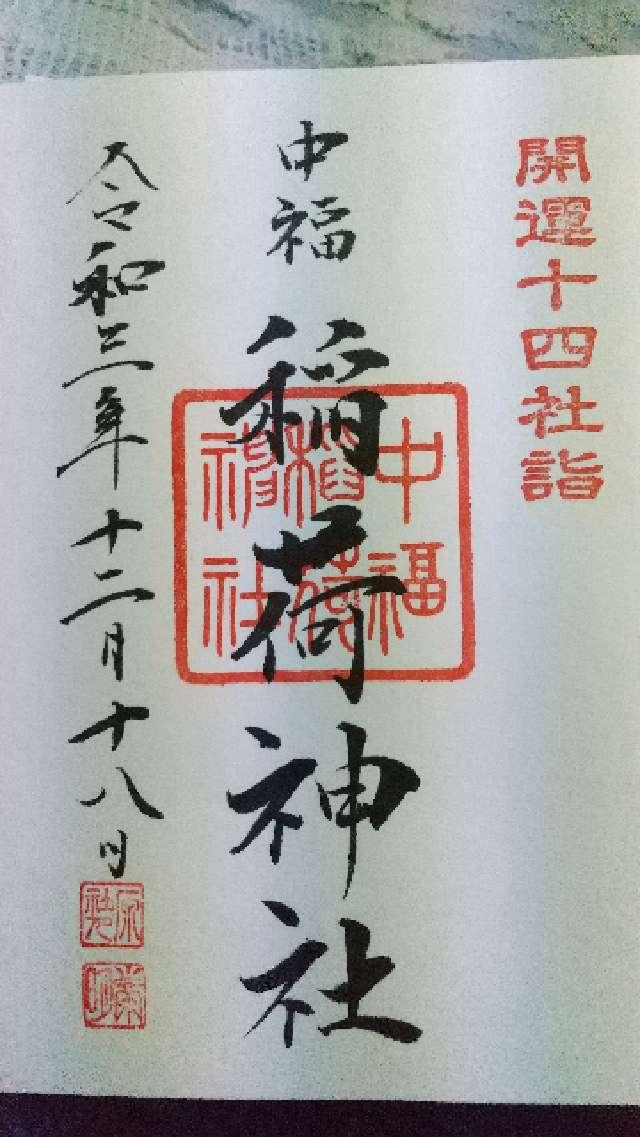 開運十四社詣
中福
稲荷神社
中福
稲荷
神社
令和三年十二月十八日